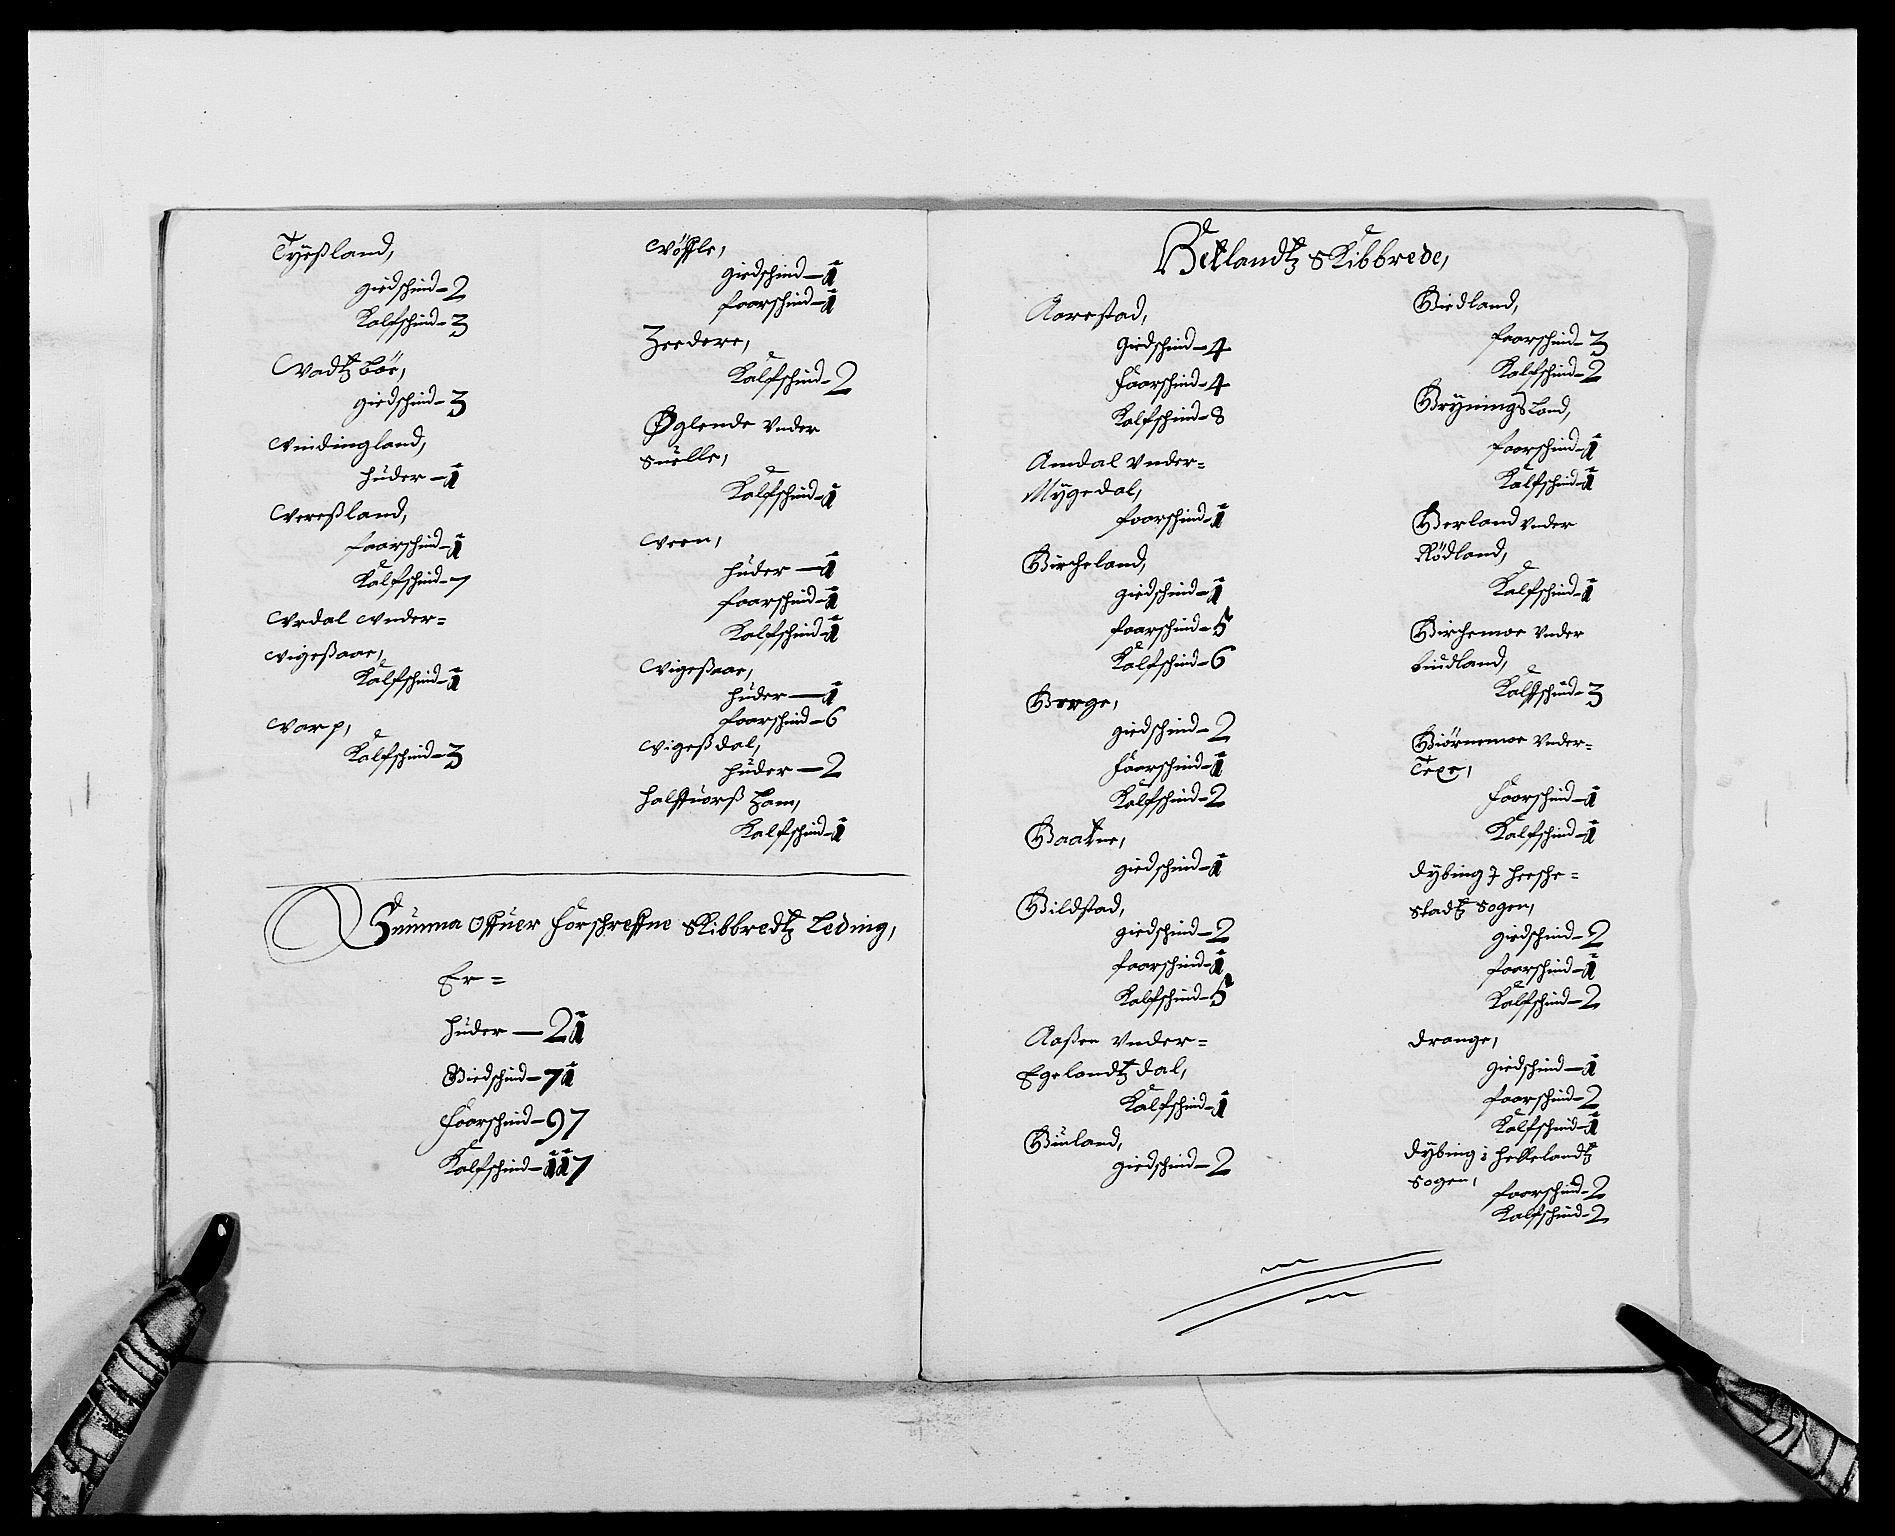 Tyeßland,
giedschind - 2
Kalfschind - 3
Vadtz böe,
giedschind - 3
Vindingland,
huder - 1
Vereßland,
faarschind - 1
Kalfschind - 7
Vrdal Vnder=
Vigeßaae,
Kalfschind - 1
Varp,
Kalfschind - 3
Vösle,
giedschind - 1
faarschind - 1
Zeedere,
Kalfschind - 2
Øglende Vnder
Suelle,
Kalfschind - 1
Veen,
huder - 1
faarschind - 1
Kalfschind - 1
Vigeßaae,
huder - 1
faarschind - 6
Vigeßdal,
huder - 2
halffuorß Ham,
Kalfschind - 1
Summa Offuer Forschreffne Skibbredtz Leding,
Er =
huder - 21
Giedschind - 71
Faarschind - 97
Kalfschind - 117
Hetlandtz Skibbrede,
Aarestad,
Giedschind - 4
Faarschind - 4
Kalfschind - 8
Amdal Vnder=
Mygedal,
faarschind - 1
Bircheland,
giedschind - 1
faarschind - 5
Kalfschind - 6
Berge,
giedschind - 2
Faarschind - 1
Kalfschind - 2
Baatne,
giedschind - 1
Bildstad,
giedschind - 2
faarschind - 1
Kalfschind - 5
Aaßen Vnder=
Egelandtz dal,
Kalfschind - 1
Buland,
giedschind - 2
Biedland,
faarschind - 3
Kalfschind - 2
Bryningsland,
faarschind - 1
Kalfschind - 1
Berland Vnder
Rödland,
Kalfschind - 1
Birchemoe Vnder
Lindland,
Kalfschind - 3
Biörnemoe Vnder=
Texe,
Faarschind - 1
Kalfschind - 1
Dybing J heske=
stadtz Sogen,
giedschind - 2
faarschind - 1
Kalfschind - 2
Drange,
giedschind - 1
faarschind - 2
Kalfschind - 1
Dybing i hellelandtz
Sogen,
faarschind - 2
Kalfschind - 2